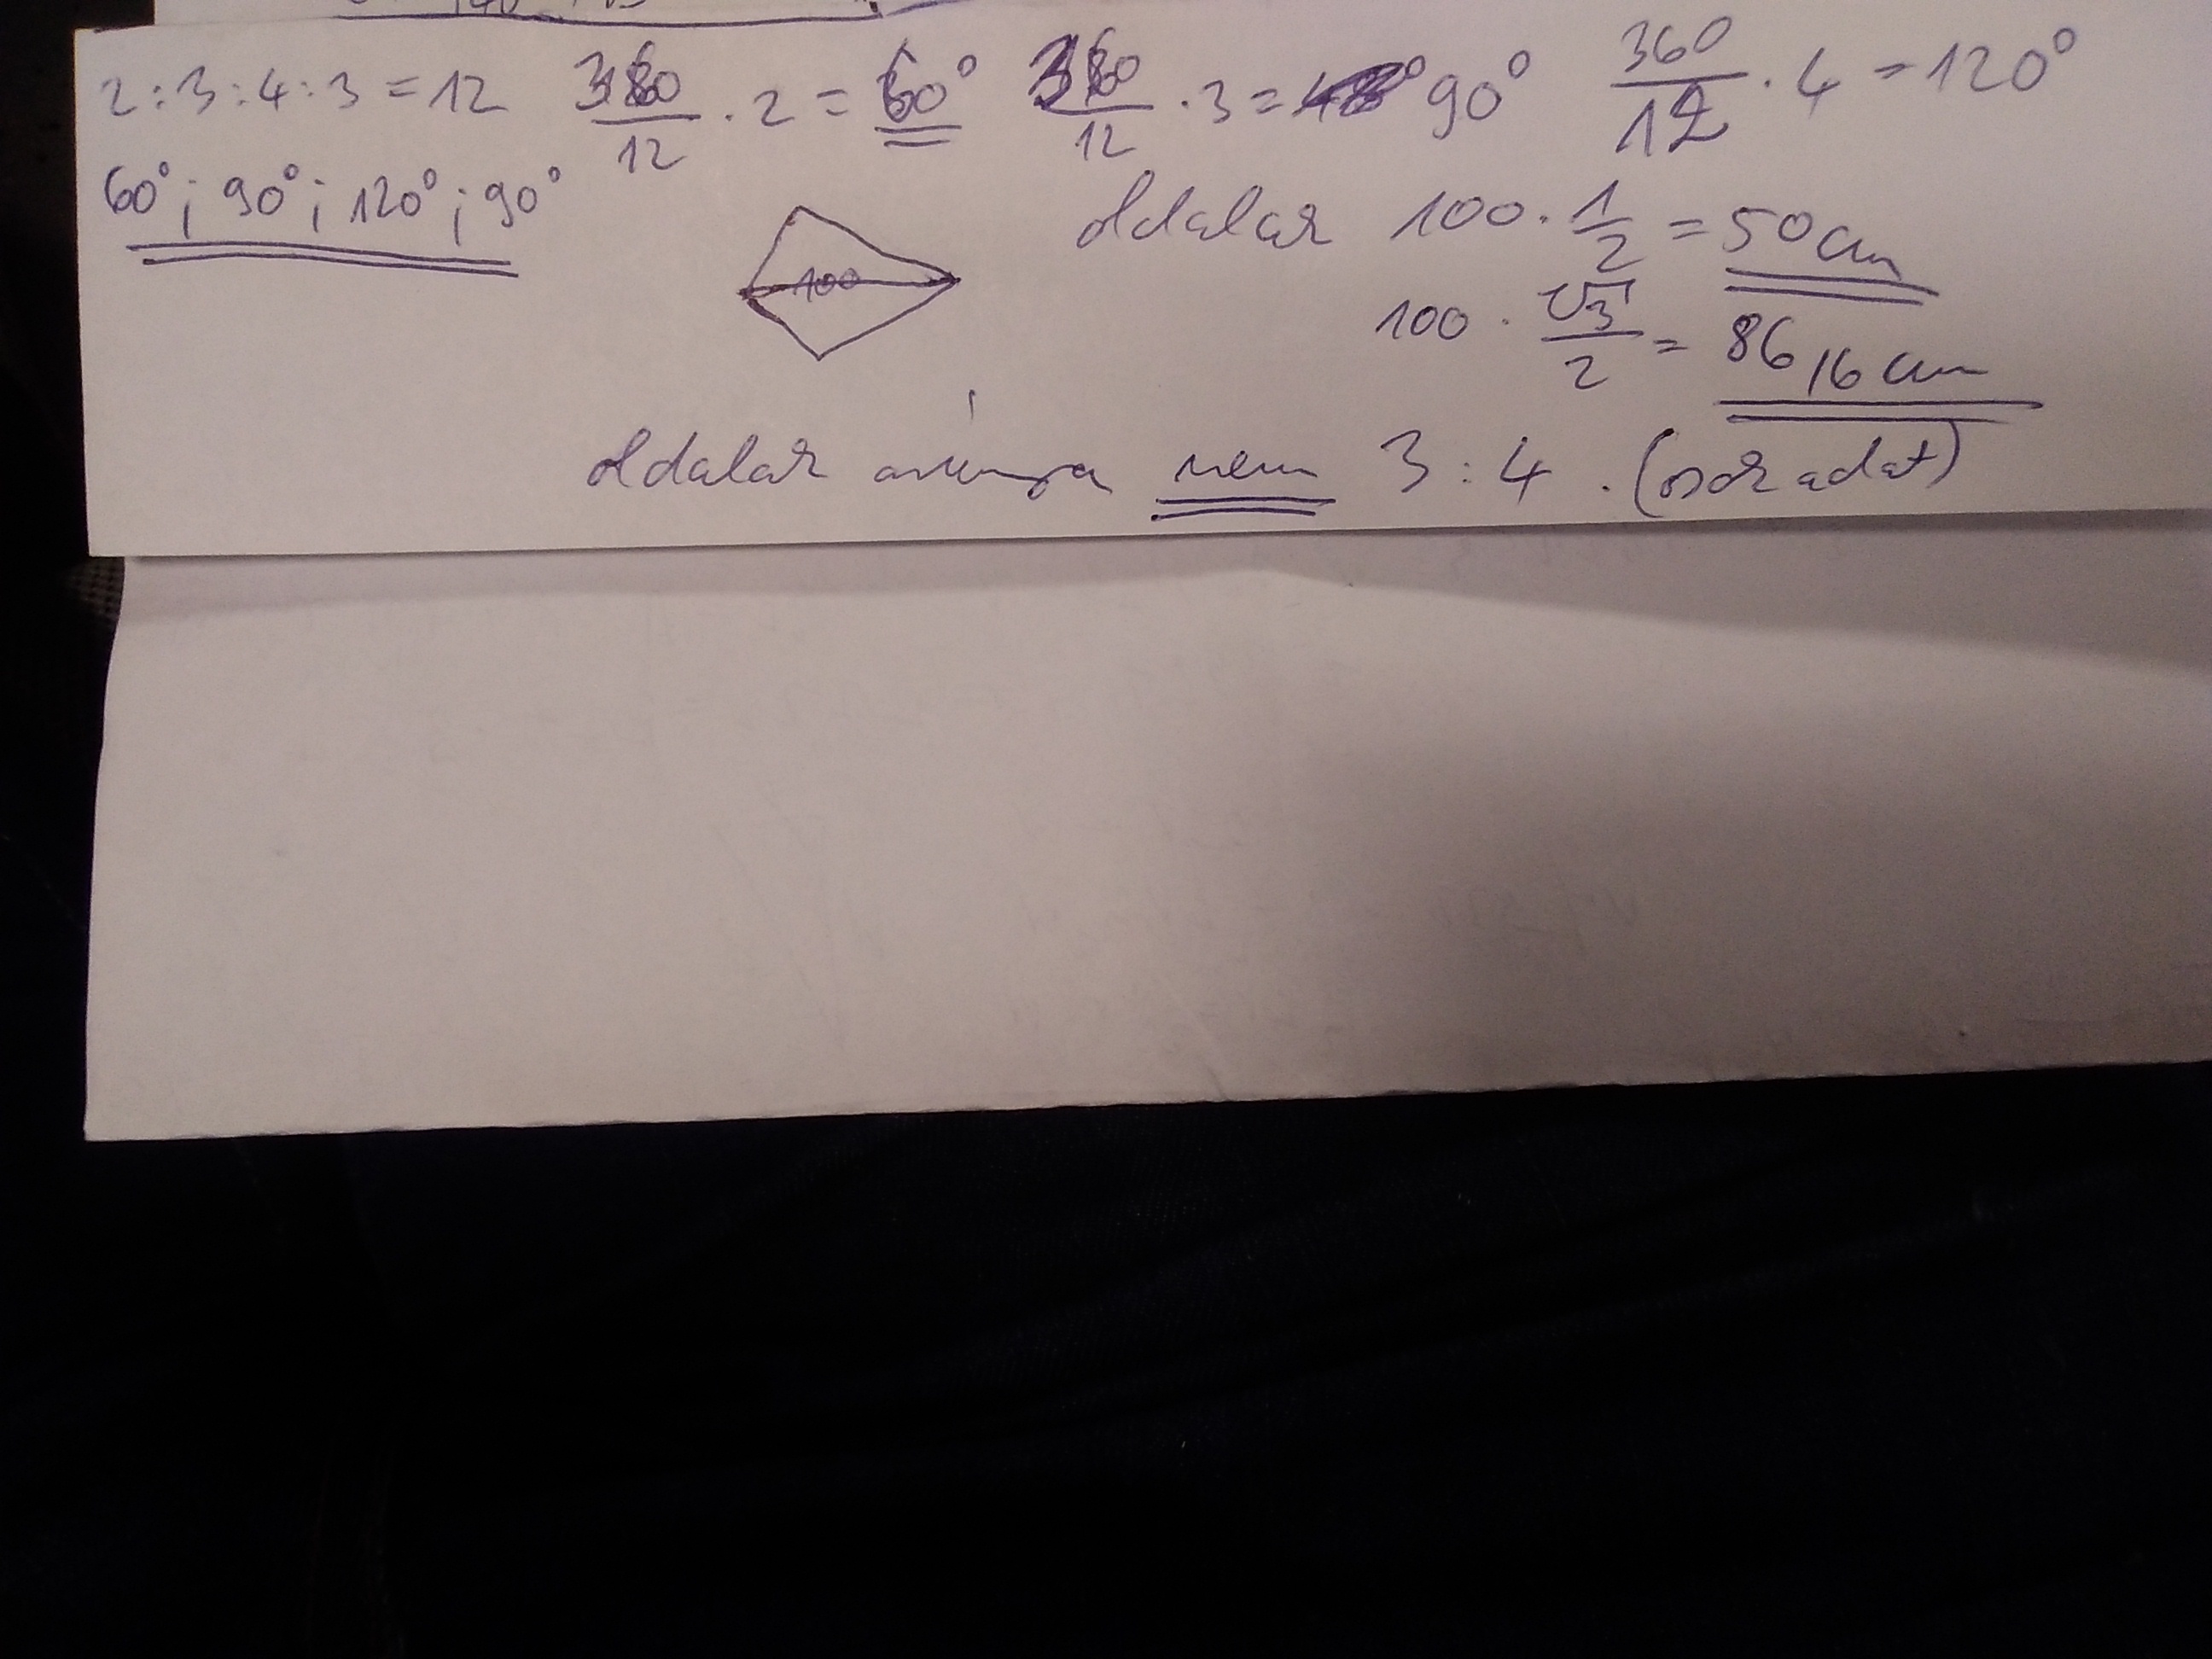 2:3:4:3 = 12 360/12 · 2 = 60° 360/12 · 3 = 90° 360/12 · 4 = 120°
60°; 90°; 120°; 90°
100
oldalak 100 · 1/2 = 50 cm
100 · √3/2 = 86,6 cm
oldalak aránya nem 3:4. (sok adat)